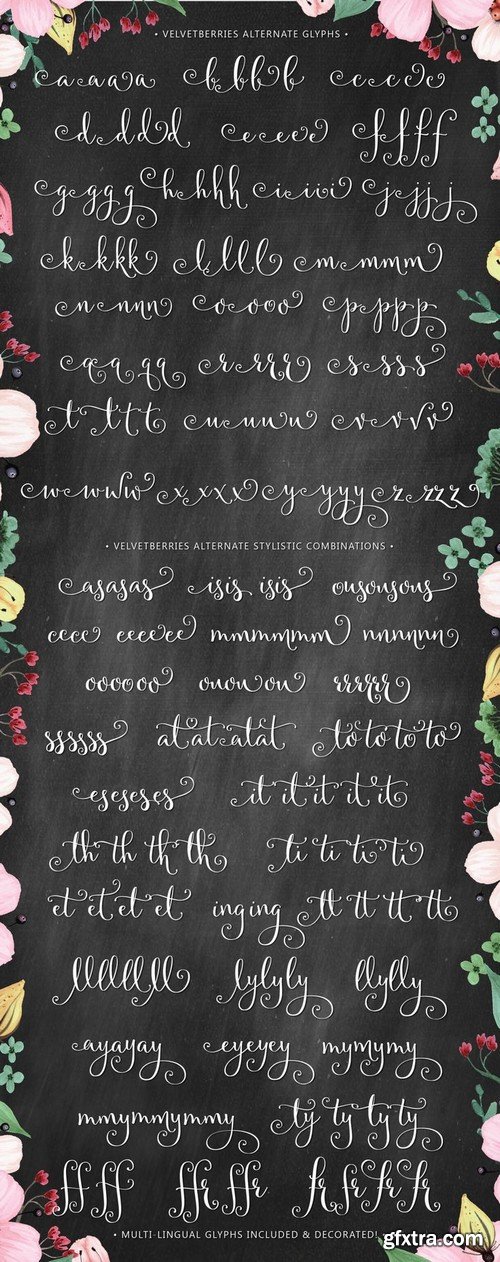 • VELVETBERRIES ALTERNATE GLYPHS •
a a a a b b b b c c c c
d d d d e e e e f f f f
g g g g h h h h i i i i j j j j
k k k k l l l l m m m m
n n n n o o o o p p p p
q q q q r r r r s s s s
t t t t u u u u v v v v
w w w w x x x x y y y y z z z z
• VELVETBERRIES ALTERNATE STYLISTIC COMBINATIONS •
asasas isis isis ousousous
eeee eeeeee mmmmmm nnnnnn
oooooo ououou rrrrrr
ssssss atatatat totototo
eseseses it it it it it
th th th th ti ti ti ti
et et et et inging tt tt tt tt
llllllll lylyly llylly
ayayay eyeyey mymymy
mmymmymmy ty ty ty ty
ff ff ffr ffr fr fr fr fr
• MULTI-LINGUAL GLYPHS INCLUDED & DECORATED!
gfxtra.com